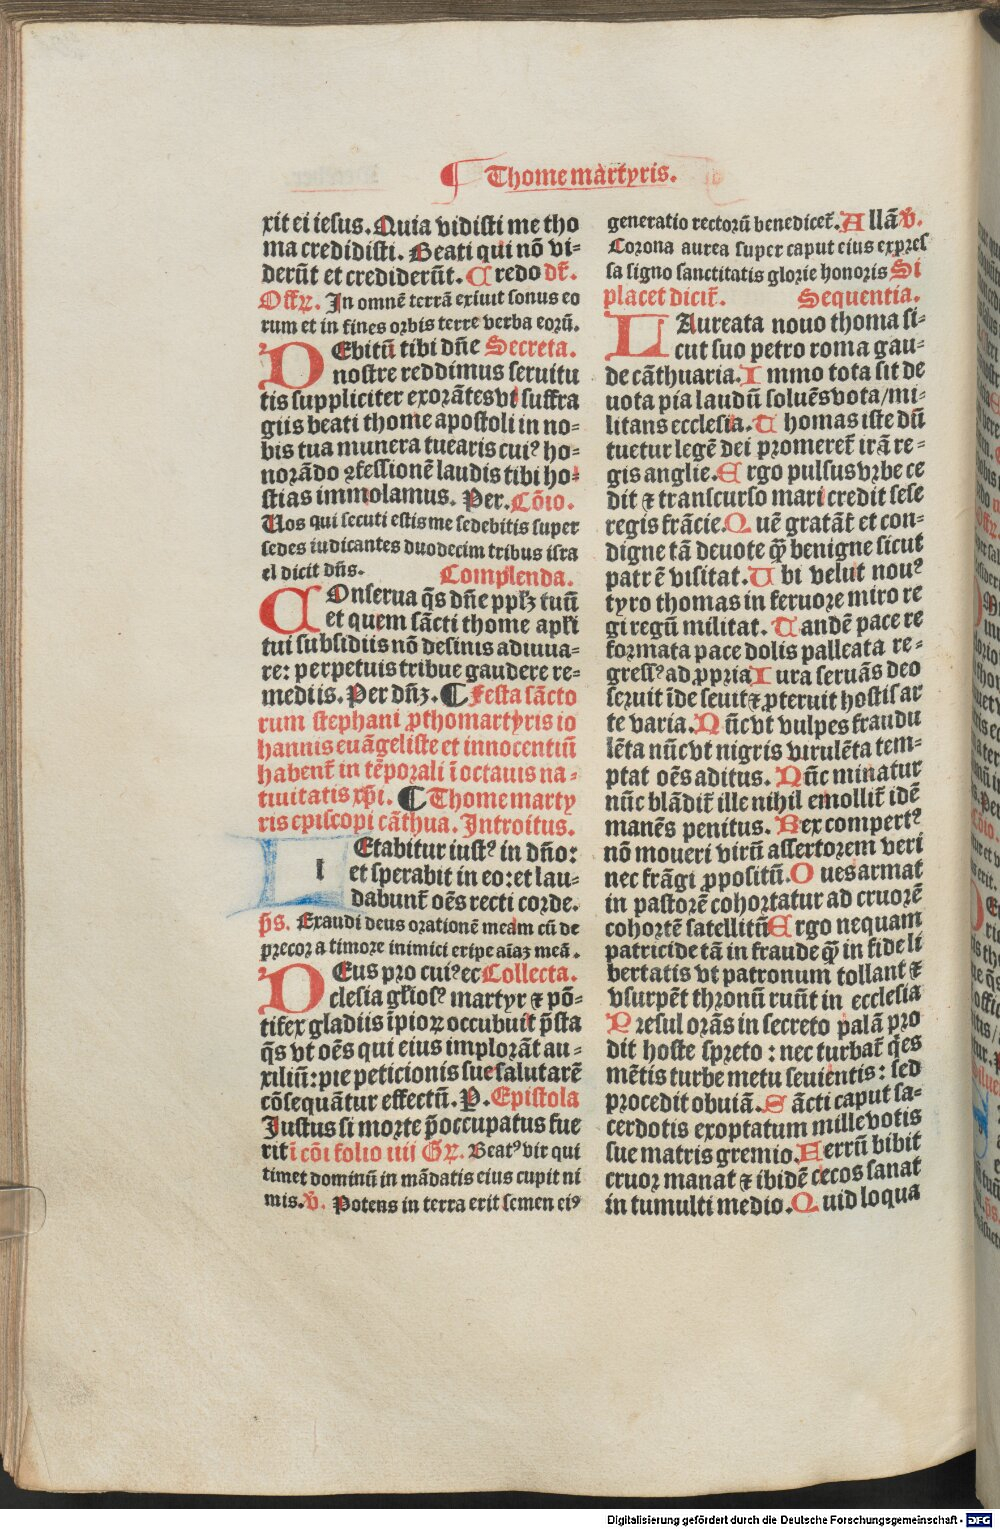 ¶ Thome martyris.
xit ei iesus. Quia vidisti me tho
ma credidisti. Beati qui nō vi-
derūt et crediderūt. Credo dr̄.
Offꝝ. In omnē terrā exiuit sonus eo
rum et in fines orbis terre verba eorū.
DEbitū tibi dn̄e Secreta.
nostre reddimus seruitu
tis suppliciter exorātes vt suffra
giis beati thome apostoli in no-
bis tua munera tuearis cuiꝰ ho-
norādo ꝯfessionē laudis tibi ho-
stias immolamus. Per. Cōio.
Uos qui secuti estis me sedebitis super
sedes iudicantes duodecim tribus isra
el dicit dn̄s. Complenda.
COnserua q̄s dn̄e ppl'ꝫ tuū
et quem sācti thome apl'i
tui subsidiis nō desinis adiuua-
re: perpetuis tribue gaudere re-
mediis. Per dn̄ꝫ. ¶ Festa sācto
rum stephani ꝓthomartyris io
hannis euāgeliste et innocentiū
habent̄ in tēporali ī octauis na-
tiuitatis xp̄i. ¶ Thome marty
ris episcopi cāthua. Introitus.
lEtabitur iustꝰ in dn̄o:
et sperabit in eo: et lau-
dabunt̄ oēs recti corde.
p̄s. Exaudi deus orationē meam cū de
precor a timore inimici eripe aīaꝫ meā.
DEus pro cuiꝰ ec Collecta.
clesia gl'iosꝰ martyr ⁊ pō-
tifex gladiis īpioꝝ occubuit p̄sta
q̄s vt oēs qui eius implorāt au-
xiliū: pie peticionis sue salutarē
cōsequātur effectū. P. Epistola
Justus si morte p̄occupatus fue
rit ī cōi folio iiij Gꝝ. Beatꝰ vir qui
timet dominū in mādatis eius cupit ni
mis. v. Potens in terra erit semen eiꝰ
generatio rectorū benedicet̄. Allā v.
Corona aurea super caput eius expres
sa signo sanctitatis glorie honoris Si
placet dicit̄. Sequentia.
LAureata nouo thoma si-
cut suo petro roma gau-
de cāthuaria. Immo tota sit de
uota pia laudū soluēs vota/mi-
litans ecclesia. Thomas iste dū
tuetur legē dei promeret̄ irā re-
gis anglie. Ergo pulsus vrbe ce
dit ⁊ transcurso mari credit sese
regis frācie. Quē gratāt̄ et con-
digne tā deuote q̄ꝫ benigne sicut
patrē visitat. Ubi velut nouꝰ
tyro thomas in feruore miro re
gi regū militat. Tandē pace re
formata pace dolis palleata re-
gressꝰ ad ꝓpria Iura seruās deo
seruit īde seuit ⁊ ꝓteruit hostis ar
te varia. Nūc vt vulpes fraudu
lēta nūc vt nigris virulēta tem-
ptat oēs aditus. Nūc minatur
nūc blādit̄ ille nihil emollit̄ idē
manēs penitus. Rex compertꝰ
nō moueri virū assertorem veri
nec frāgi ꝓpositū. Oues armat
in pastorē cohortatur ad cruorē
cohortē satellitū Ergo nequam
patricide tā in fraude q̄ꝫ in fide li
bertatis vt patronum tollant ⁊
vsurpēt thronū ruūt in ecclesia
Presul orās in secreto palā pro
dit hoste spreto: nec turbat̄ q̄es
mētis turbe metu seuientis: sed
procedit obuiā. Sācti caput sa-
cerdotis exoptatum mille votis
sue matris gremio. Ferrū bibit
cruor manat ⁊ ibidē cecos sanat
in tumulti medio. Quid loqua
Digitalisierung gefördert durch die Deutsche Forschungsgemeinschaft - DFG